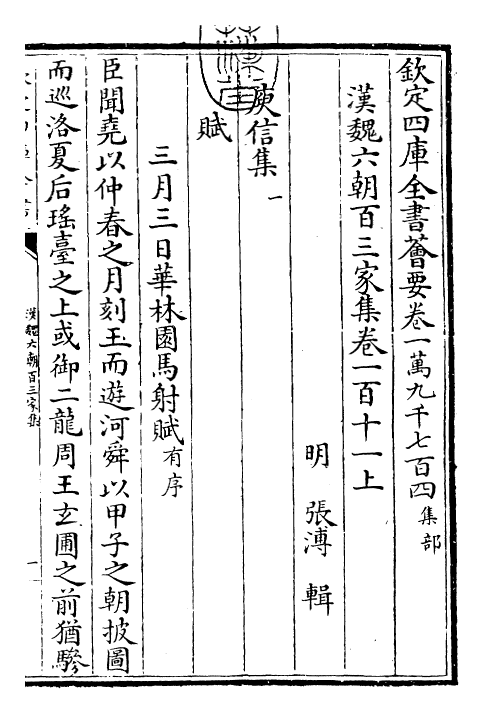 欽定四庫全書薈要卷一萬九千七百四 集部
漢魏六朝百三家集卷一百十一上
明 張溥 輯
庾信集一
賦
三月三日華林園馬射賦 有序
臣聞堯以仲春之月刻玉而遊河舜以甲子之朝披圖
而巡洛夏后瑤臺之上或御二龍周王玄圃之前猶驂
漢魏六朝百三家集
一